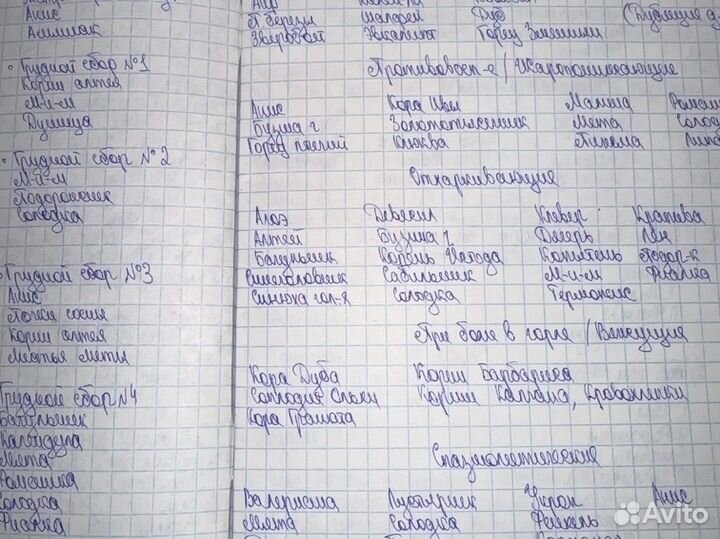 Анис
Аминмак
• Грудной сбор №1
Корни алтея
М-и-м
Душица
• Грудной сбор №2
М-и-м
Подорожник
Солодка
• Грудной сбор №3
Анис
Почки сосны
Корни алтея
Листья мяты
Грудной сбор №4
Багульник
Календула
Мята
Ромашка
Солодка
Фиалка
П березы Шалфей Дуб
Зверобой Эвкалипт Горец Змеиный
Противовосп-е / Жаропонижающие
Анис Кора Ивы Малина
Бузина ч Золототысячник Мята
Горец почечный Клюква Пижма
Отхаркивающие
Алоэ Девясил Клевер Крапива
Алтей Бузина ч Дягерь Лён
Багульник Корень Исгода Копытень Подор-к
Синеголовник Сабельник М-и-м Фиалка
Синюха гол-я Солодка Термопсис
При боле в горле / Вяжущие
Кора Дуба Корни Барбариса
Соплодия Ольхи Корни Калгана, Кровохлёбки
Кора Граната
Спазмолитические
Валериана Пустырник Укроп Анис
Мята Солодка Фенхель
Avito